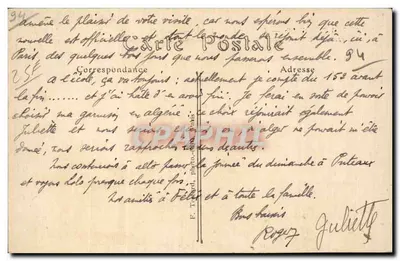 94
amène le plaisir de votre visite, car nous espérons bien que cette
nouvelle est officielle et dont le monde se réjouit déjà, ici, à
Carte Postale
Paris, des quelques bons jours que nous passerons ensemble.
94
Correspondance
Adresse
à l'école, ça va toujours; actuellement je compte du 153 avant
la fin........ et j'ai hâte d'en avoir fini. Je ferai en sorte de pouvoir
choisir ma garnison en algérie, ce choix réjouirait également
Juliette et nous
alger ne pouvait m'être
donné, nous serions rapprochés
Nous continuons à aller passer la journée du dimanche à Puteaux
et voyons Lolo presque chaque fois.
Nos amitiés à Félix et à toute la famille.
Bons baisers
Roger
Juliette
CPAPHIL